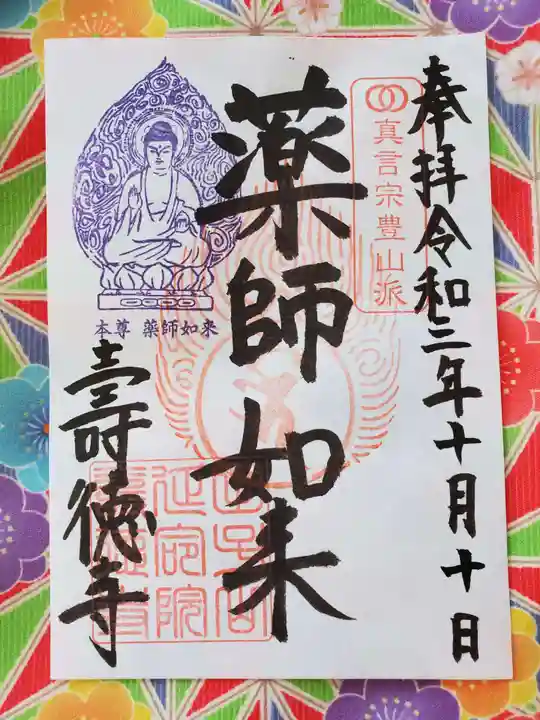 奉拝令和三年十月十日
真言宗豊山派
薬師如来
本尊 薬師如来
壽徳寺